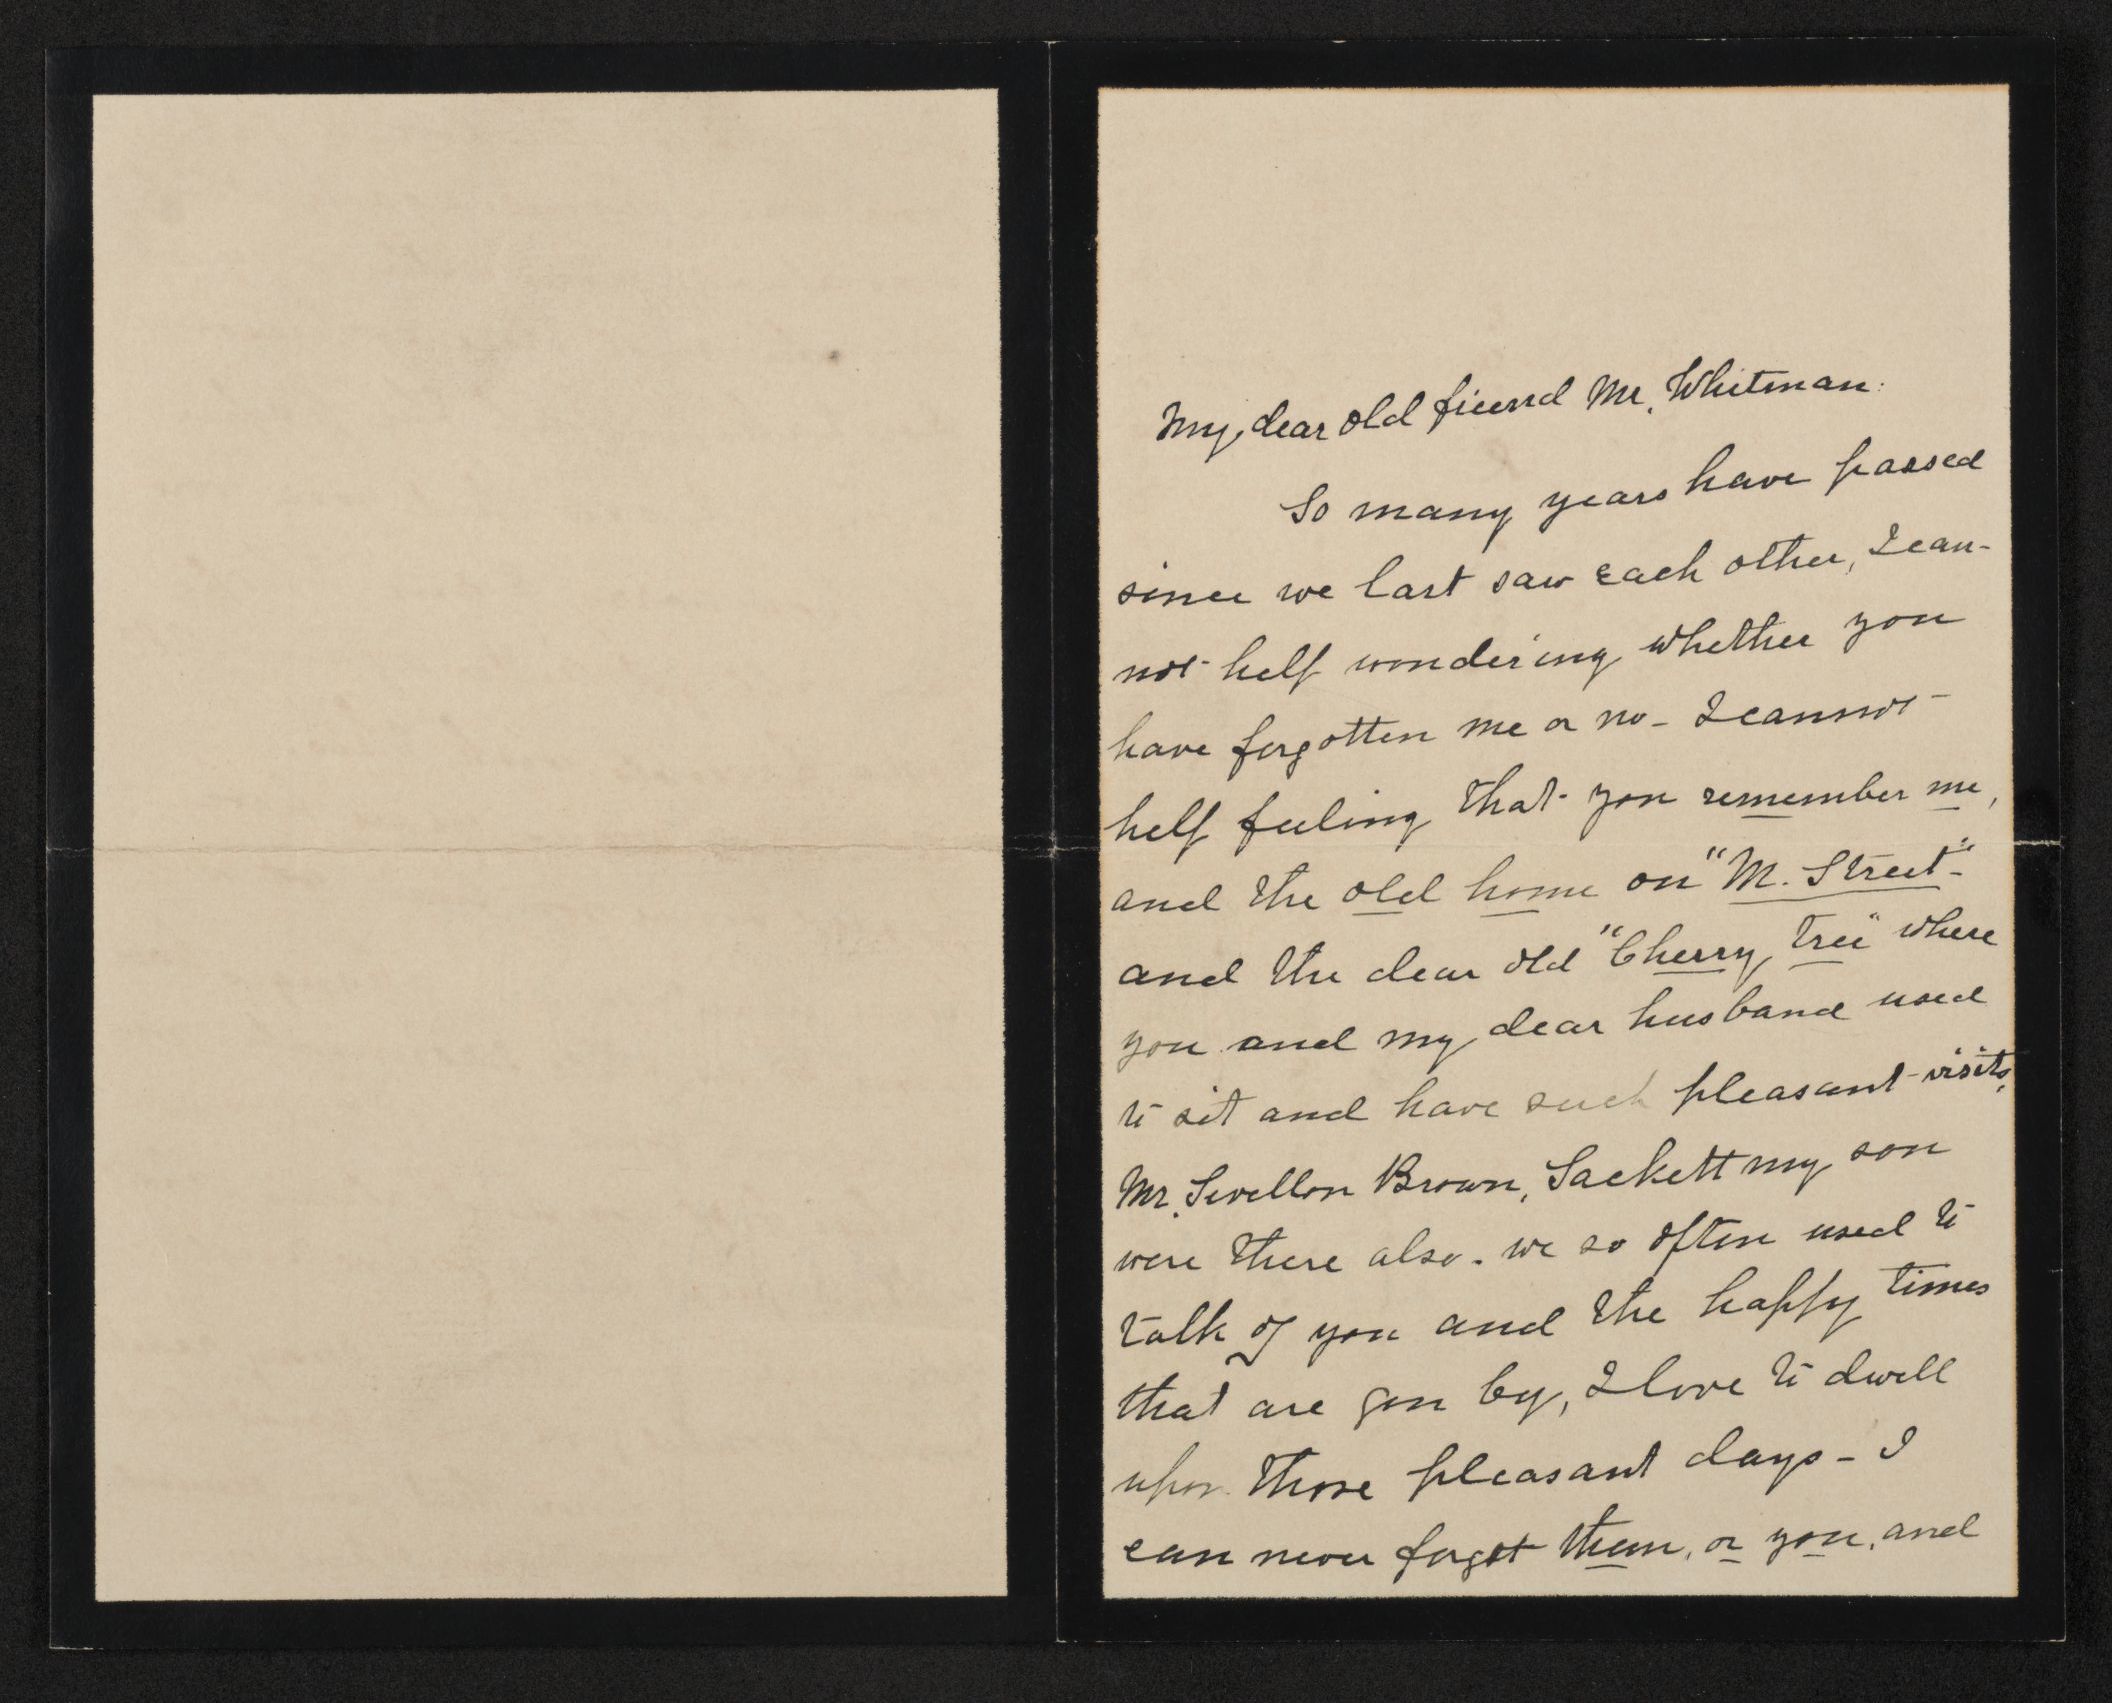 My dear old friend Mr. Whitman:
So many years have passed
since we last saw each other, I can-
not help wondering whether you
have forgotten me or no - I cannot
help feeling that you remember me,
and the old home on "M. Street"-
and the dear old "Cherry tree" where
you and my dear husband used
to sit and have such pleasant visits,
Mr. Sevellon Brown, Sackett my son
were there also. we so often used to
talk of you and the happy times
that are gon by, I love to dwell
upon those pleasant days - I
can never forget them, or you, and